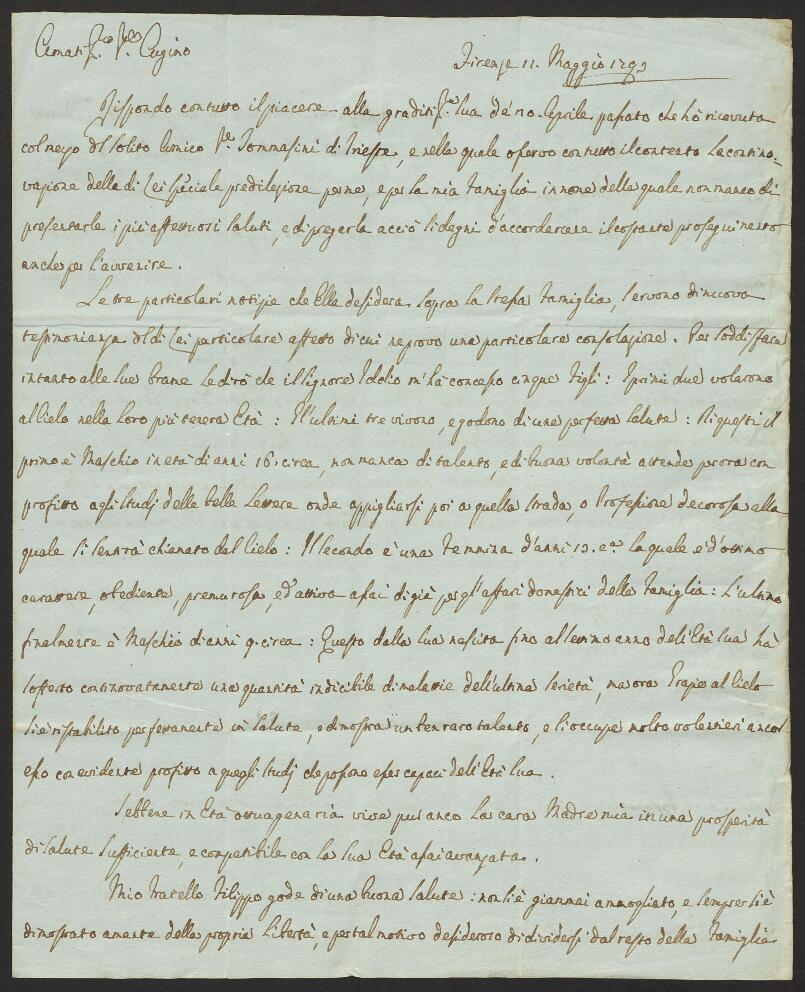 Amatis.mo Sig.r Cugino
Firenze 11. Maggio 1793
Rispondo con tutto il piacere alla graditis.ma sua de' 10. Aprile passato che hò ricevuta
col mezzo del solito Amico Sig.re Tommasini di Trieste, e nella quale osservo con tutto il contento la contino-
vazione della di Lei speciale predilezione per me, e per la mia Famiglia in nome della quale non manco di
presentarle i più affettuosi saluti, e di pregarla acciò si degni d'accordarcene il costante proseguimento
anche per l'avvenire.
Le tre particolari notizie che Ella desidera sopra la stessa Famiglia, servono di nuova
testimonianza del di Lei particolare affetto di cui ne provo una particolare consolazione. Per soddisfare
intanto alle sue brame le dirò che il Signore Iddio m'hà concesso cinque Figli: I primi due volarono
al Cielo nella loro più tenera Età: Gl'ultimi tre vivono, e godono di una perfetta salute: Di questi il
primo è Maschio in età di anni 16. circa, non manca di talento, e di buona volontà attende per ora con
profitto agli Studj delle belle Lettere onde appigliarsi poi a quella strada, o Professione decorosa alla
quale si sentirà chiamato dal Cielo: Il secondo è una Femmina d'anni 13. c.a la quale è d'ottimo
carattere, obediente, premurosa, ed attiva assai di già per gl'affari domestici della Famiglia: L'ultimo
finalmente è Maschio di anni 9. circa: Questo dalla sua nascita fino al settimo anno dell'Età sua hà
sofferto continovatamente una quantità indicibile di malattie dell'ultima serietà, ma ora Grazie al Cielo
si è ristabilito perfettamente in salute, e dimostra un ben raro talento, e si occupa molto volentieri ancor
esso con evidente profitto a quegli Studj che possono esser capaci dell'Età sua.
Sebbene in Età ottuagenaria vive pur anco la cara Madre mia in una prosperità
di salute sufficiente, e compatibile con la sua Età assai avanzata.
Mio Fratello Filippo gode di una buona salute: non si è giammai ammogliato, e sempre si è
dimostrato amante della propria Libertà, e per tal motivo desideroso di dividersi dal resto della Famiglia